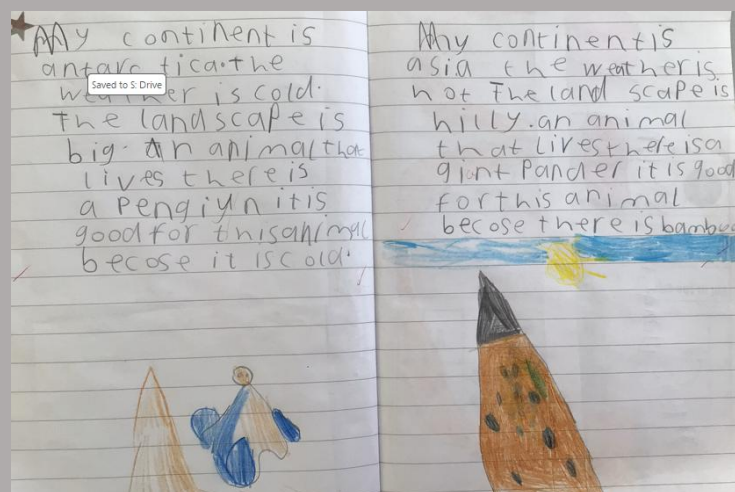 My continent is
antarctica. the
weather is cold.
the landscape is
big. An animal that
lives there is
a Pengiyn it is
good for this animal
becose it is cold.
Saved to S: Drive
My continent is
asia the weather is
hot The land scape is
hilly. an animal
that lives there is a
giant Pander it is good
for this animal
becose there is bambu